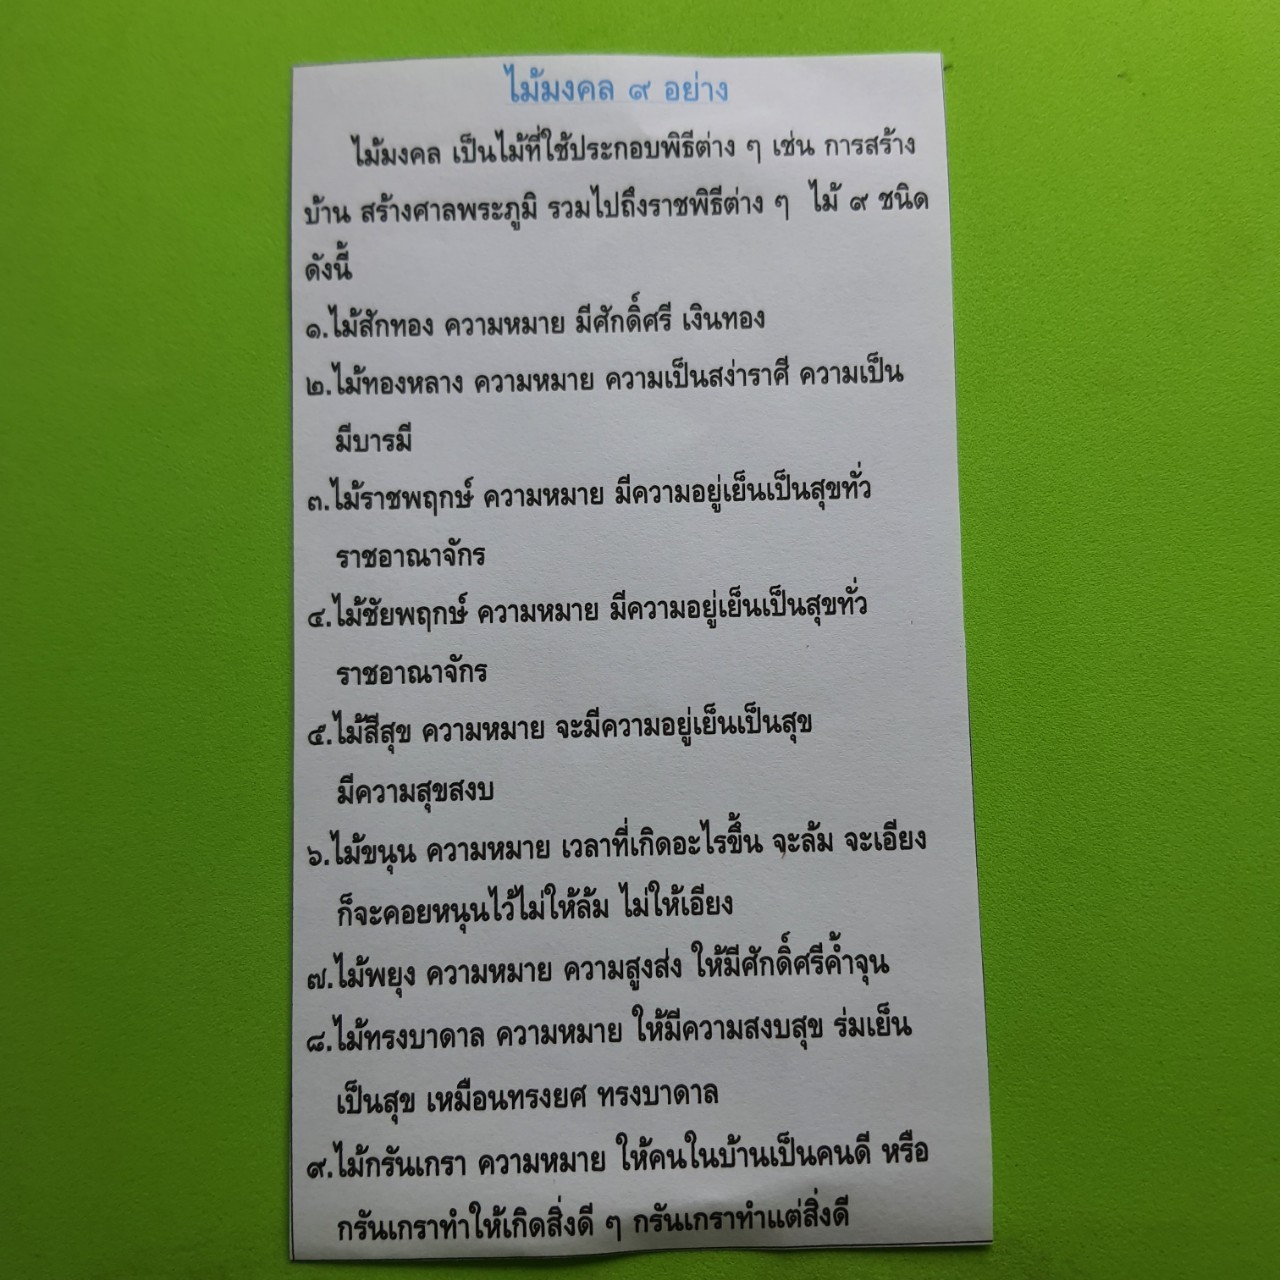 ไม้มงคล ๙ อย่าง
ไม้มงคล เป็นไม้ที่ใช้ประกอบพิธีต่าง ๆ เช่น การสร้าง
บ้าน สร้างศาลพระภูมิ รวมไปถึงราชพิธีต่าง ๆ ไม้ ๙ ชนิด
ดังนี้
๑.ไม้สักทอง ความหมาย มีศักดิ์ศรี เงินทอง
๒.ไม้ทองหลาง ความหมาย ความเป็นสง่าราศี ความเป็น
มีบารมี
๓.ไม้ราชพฤกษ์ ความหมาย มีความอยู่เย็นเป็นสุขทั่ว
ราชอาณาจักร
๔.ไม้ชัยพฤกษ์ ความหมาย มีความอยู่เย็นเป็นสุขทั่ว
ราชอาณาจักร
๕.ไม้สีสุข ความหมาย จะมีความอยู่เย็นเป็นสุข
มีความสุขสงบ
๖.ไม้ขนุน ความหมาย เวลาที่เกิดอะไรขึ้น จะล้ม จะเอียง
ก็จะคอยหนุนไว้ไม่ให้ล้ม ไม่ให้เอียง
๗.ไม้พยุง ความหมาย ความสูงส่ง ให้มีศักดิ์ศรีค้ำจุน
๘.ไม้ทรงบาดาล ความหมาย ให้มีความสงบสุข ร่มเย็น
เป็นสุข เหมือนทรงยศ ทรงบาดาล
๙.ไม้กรันเกรา ความหมาย ให้คนในบ้านเป็นคนดี หรือ
กรันเกราทำให้เกิดสิ่งดี ๆ กรันเกราทำแต่สิ่งดี